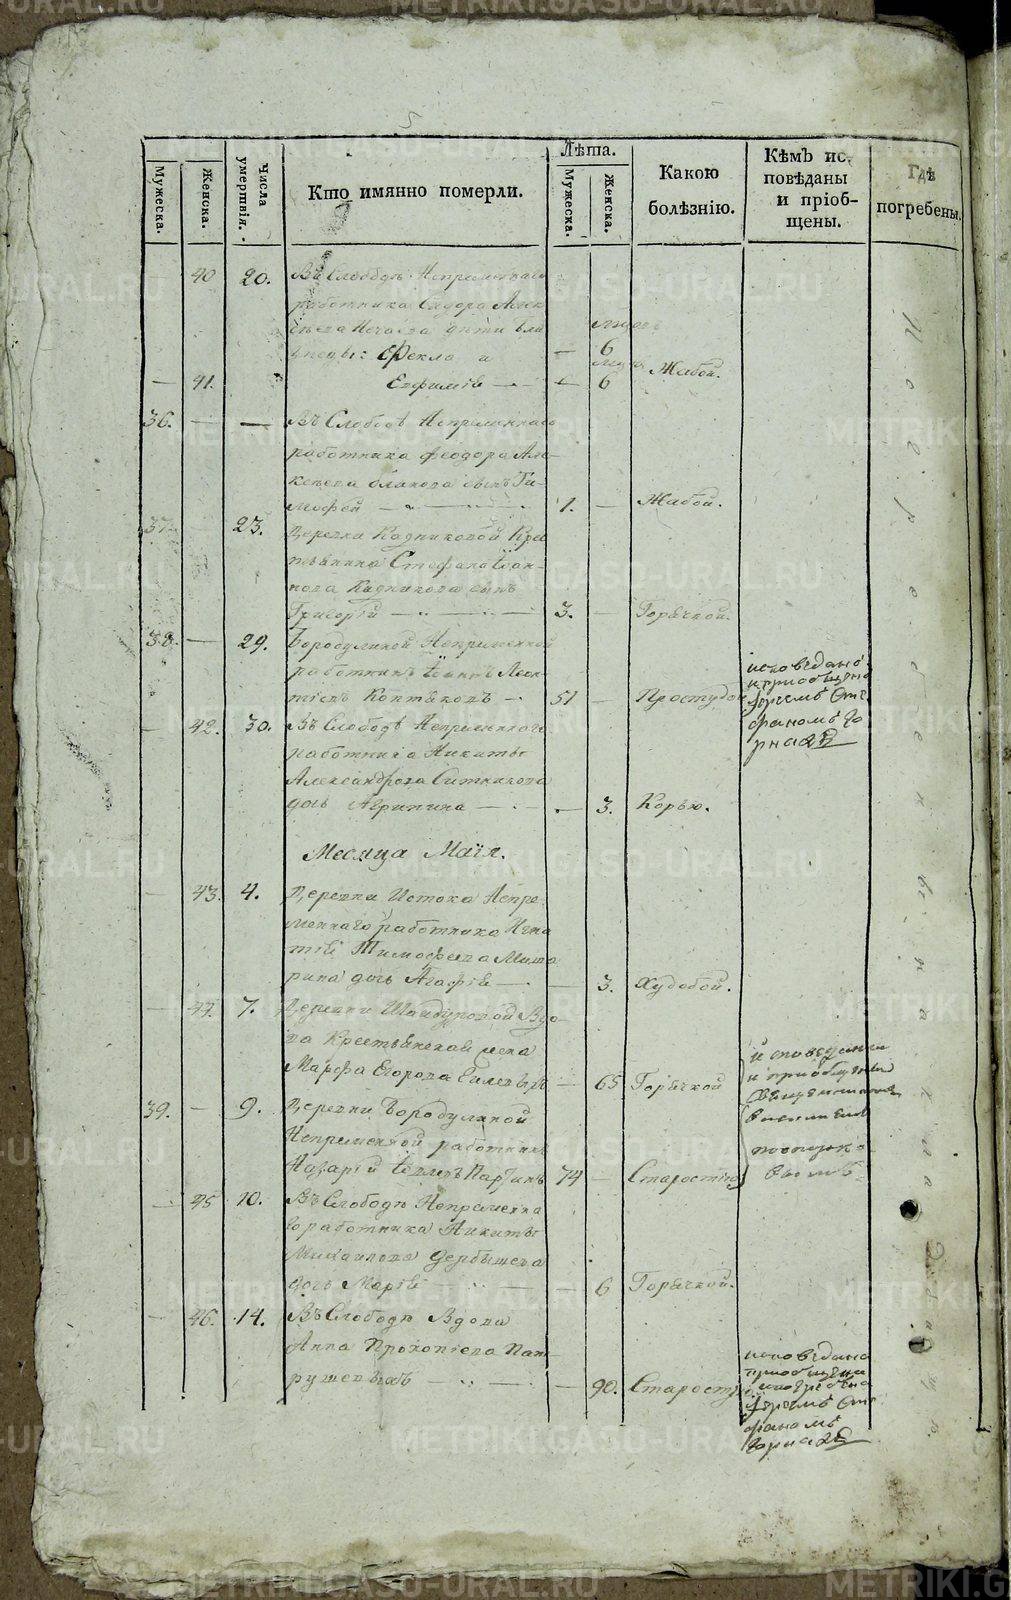 Мужеска.
Женска.
Числа умертвія.
Кто имянно померли.
Лѣта.
Мужеска.
Женска.
Какою болѣзнію.
Кѣмъ исповѣданы и пріобщены.
Гдѣ погребены.
— 40 20. Въ Слободѣ Непременнаго
работника Сидора Алек
сѣева дѣти бли
знецы: Ѳекла и — 6
— 41. Евфимія — 6 Жабой.
36. — — Въ Слободѣ Непременнаго
работника Феодора Але-
ксѣева сынъ Ти-
мофей 1. — Жабой.
37. 23. Деревни Кадниковой Кре
стьянина Стефана Іоан-
нова Кадникова сынъ
Григорій 3. — Горячкой.
38. — 29. Бородулиной Непременной
работникъ Іоаннъ Леон-
тіевъ Коптяковъ 51 — Простудою
исповѣданъ
и пріобщенъ
Іереемъ Сте
фаномъ
— 42. 30. Въ Слободѣ Непременнаго
работника Никиты
Александрова Ситникова
дочь Агрипина — 3. Корью.
Месяца Маія.
— 43. 4. Деревни Истока Непре-
меннаго работника Игна
тія Тимофеева
дочь Агафія — 3. Худобой.
— 44. 7. Деревни Шайдуровой Вдо-
ва Крестьянская жена
Марфа Егорова — 65 Горячкой
исповеданы
и приобщены
39. — 9. Деревни Бородулиной
Непременной работникъ
Назарій 74 — Старостію
— 45 10. Въ Слободѣ Непременна
го работника Никиты
Михаилова Дербышева
дочь Марія — 6 Горячкой.
— 46. 14. Въ Слободѣ Вдова
Анна Прокопіева Пап
рушевыхъ — 90. Старостію
исповѣдана
приобщена
и погребена
Іереемъ Сте
фаномъ
METRIKI.GASO-URAL.RU